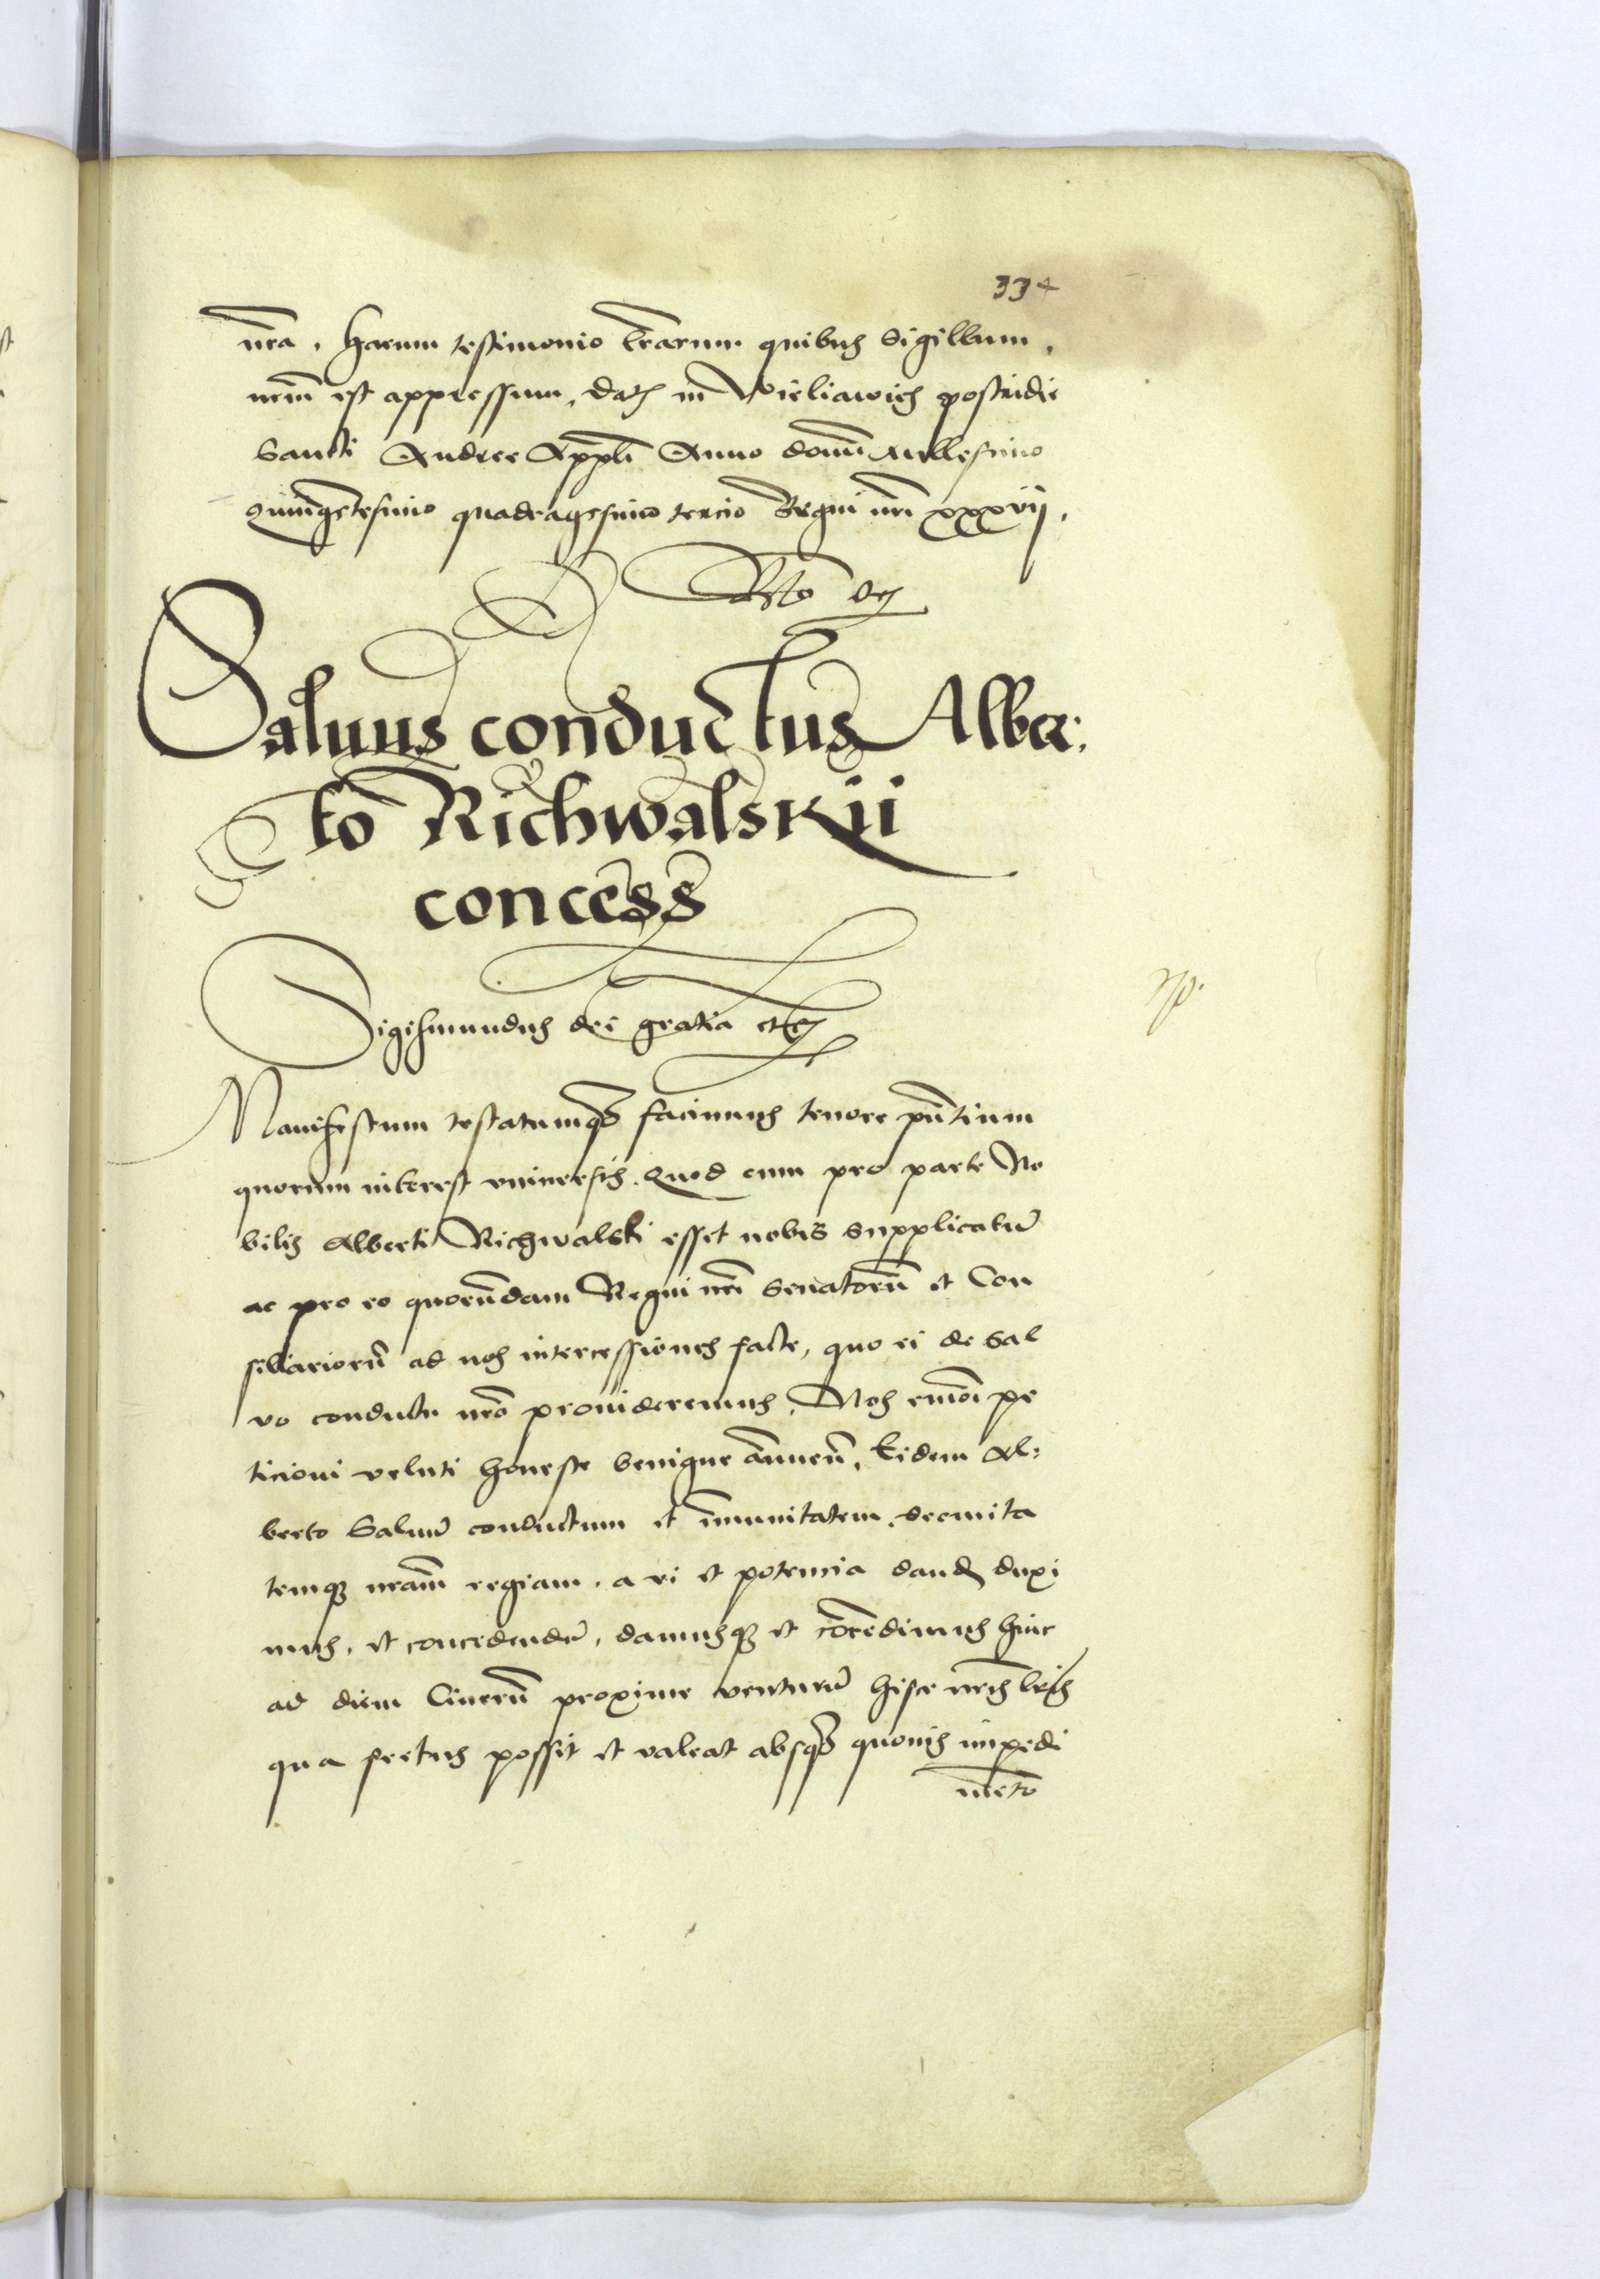 334
nra. harum testimonio lrarum quibus Sigillum
nrm est appressum. Dat in Wieliawich postridie
Sancti Andree Appli Anno domi Millesimo
Quingetesimo quadragesimo tercio Regni nri xxxvij.
Saluus conductus Alber:
to Richwalskii
concess
Sigismundus dei gratia etc
Manifestum testatumq facimus tenore pntium
quorum interest vniversis. Quod cum pro parte No
bilis Alberti Richwalski esset nobis supplicatu
ac pro eo quorundam Regni nri Senatoru et Con
siliarioru ad nos intercessiones facte, quo ei de Sal
vo conductu nro provideremus. Nos emoi pe
ticioni veluti honeste benigne annuen. Eidem Al:
berto Saluu conductum et immunitatem, securita
temq nram regiam. a vi et potencia dand duxi
mus. et concedendu, damusq et concedimus huic
ad diem Cineru proxime venturu hisce nris lris
qua fretus possit et valeat absq quovis impedi
meto